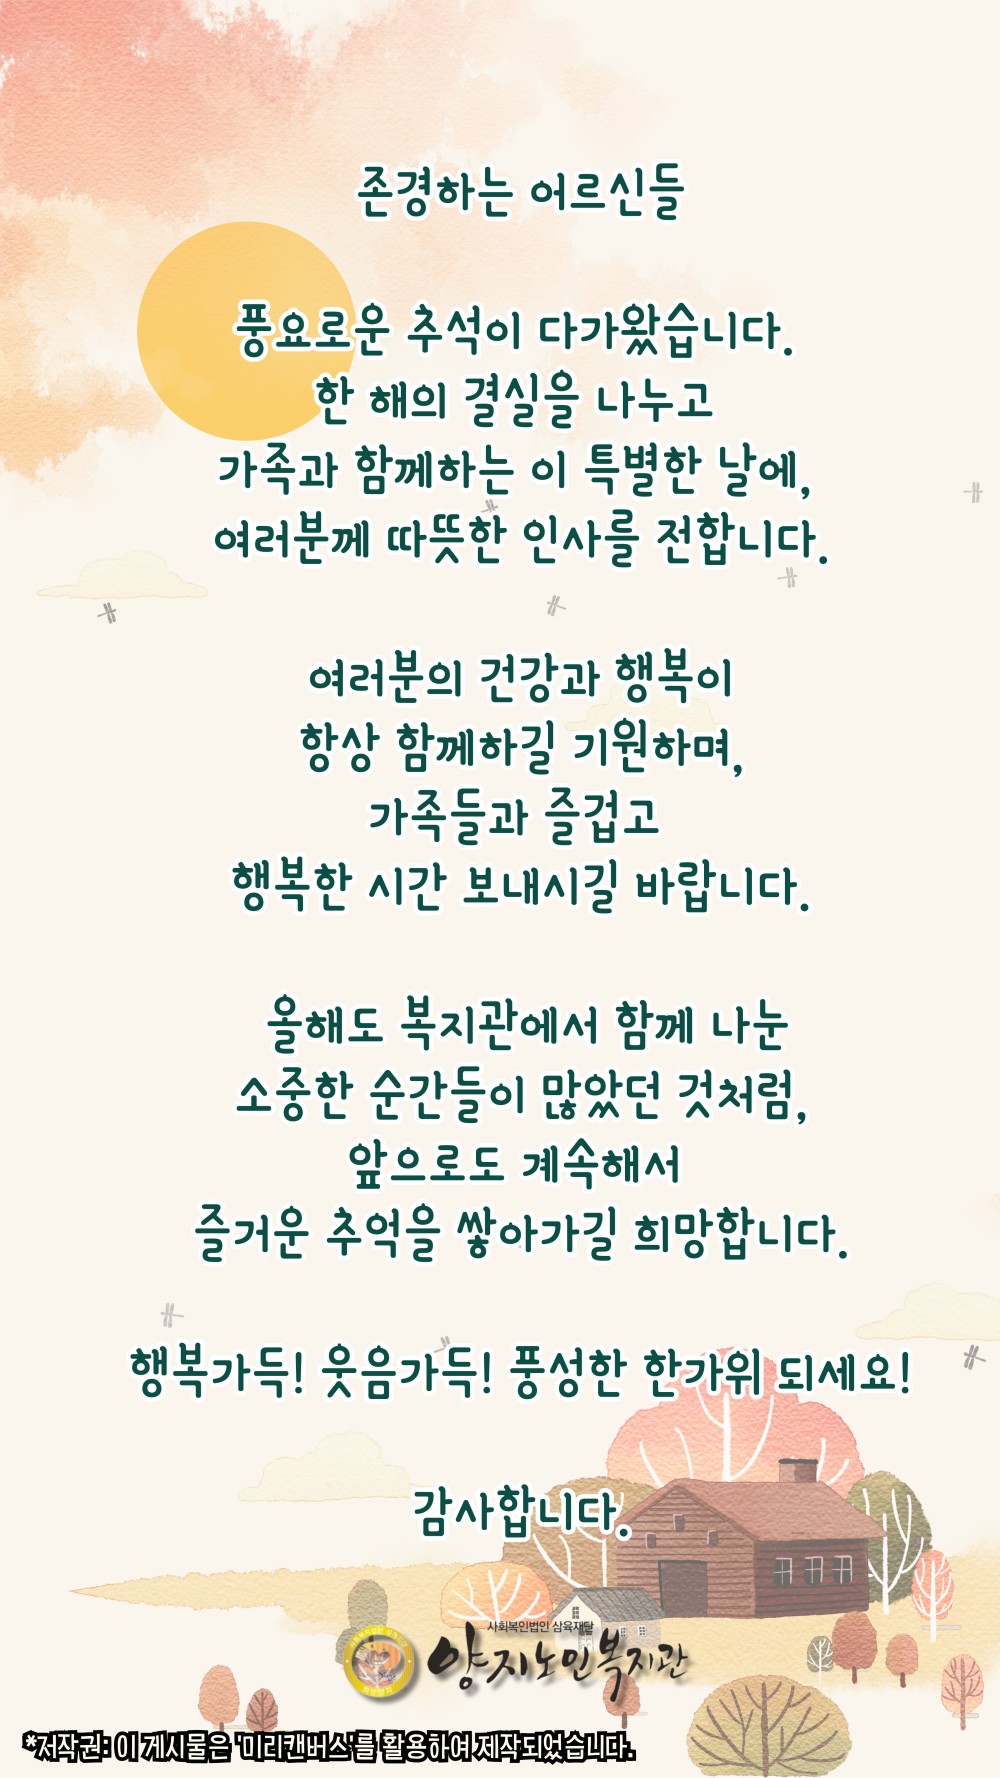 존경하는 어르신들
풍요로운 추석이 다가왔습니다.
한 해의 결실을 나누고
가족과 함께하는 이 특별한 날에,
여러분께 따뜻한 인사를 전합니다.
여러분의 건강과 행복이
항상 함께하길 기원하며,
가족들과 즐겁고
행복한 시간 보내시길 바랍니다.
올해도 복지관에서 함께 나눈
소중한 순간들이 많았던 것처럼,
앞으로도 계속해서
즐거운 추억을 쌓아가길 희망합니다.
행복가득! 웃음가득! 풍성한 한가위 되세요!
감사합니다.
사회복인법인 삼육재단
양지노인복지관
*저작권: 이 게시물은 '미리캔버스'를 활용하여 제작되었습니다.